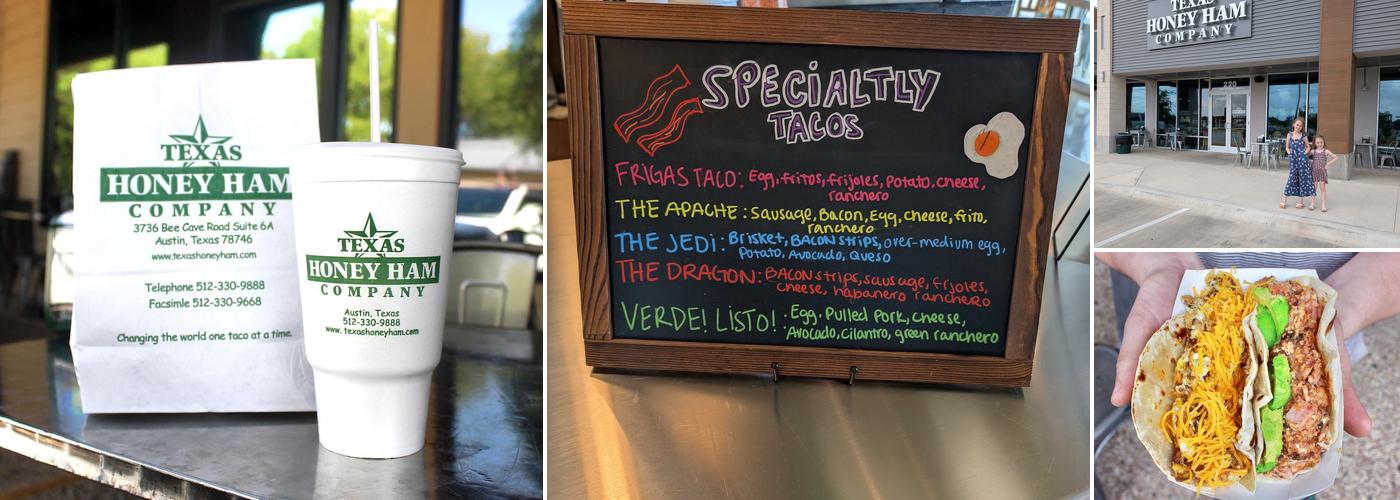 TEXAS
HONEY HAM
COMPANY
3736 Bee Cave Road Suite 6A
Austin, Texas 78746
www.texashoneyham.com
Telephone 512-330-9888
Facsimle 512-330-9668
Changing the world one taco at a time.
TEXAS
HONEY HAM
COMPANY
Austin, Texas
512-330-9888
www.texashoneyham.com
SPECIALTLY
TACOS
FRIGAS TACO: Egg, fritos, frijoles, potato, cheese,
ranchero
THE APACHE: Sausage, Bacon, Egg, cheese, frito,
ranchero
THE JEDI: Brisket, BACON strips, over-medium egg,
Potato, Avocado, Queso
THE DRAGON: BACON strips, sausage, frijoles,
cheese, habanero ranchero
VERDE! LISTO! : Egg, Pulled Pork, cheese,
Avocado, cilantro, green ranchero
TEXAS
HONEY HAM
COMPANY
220